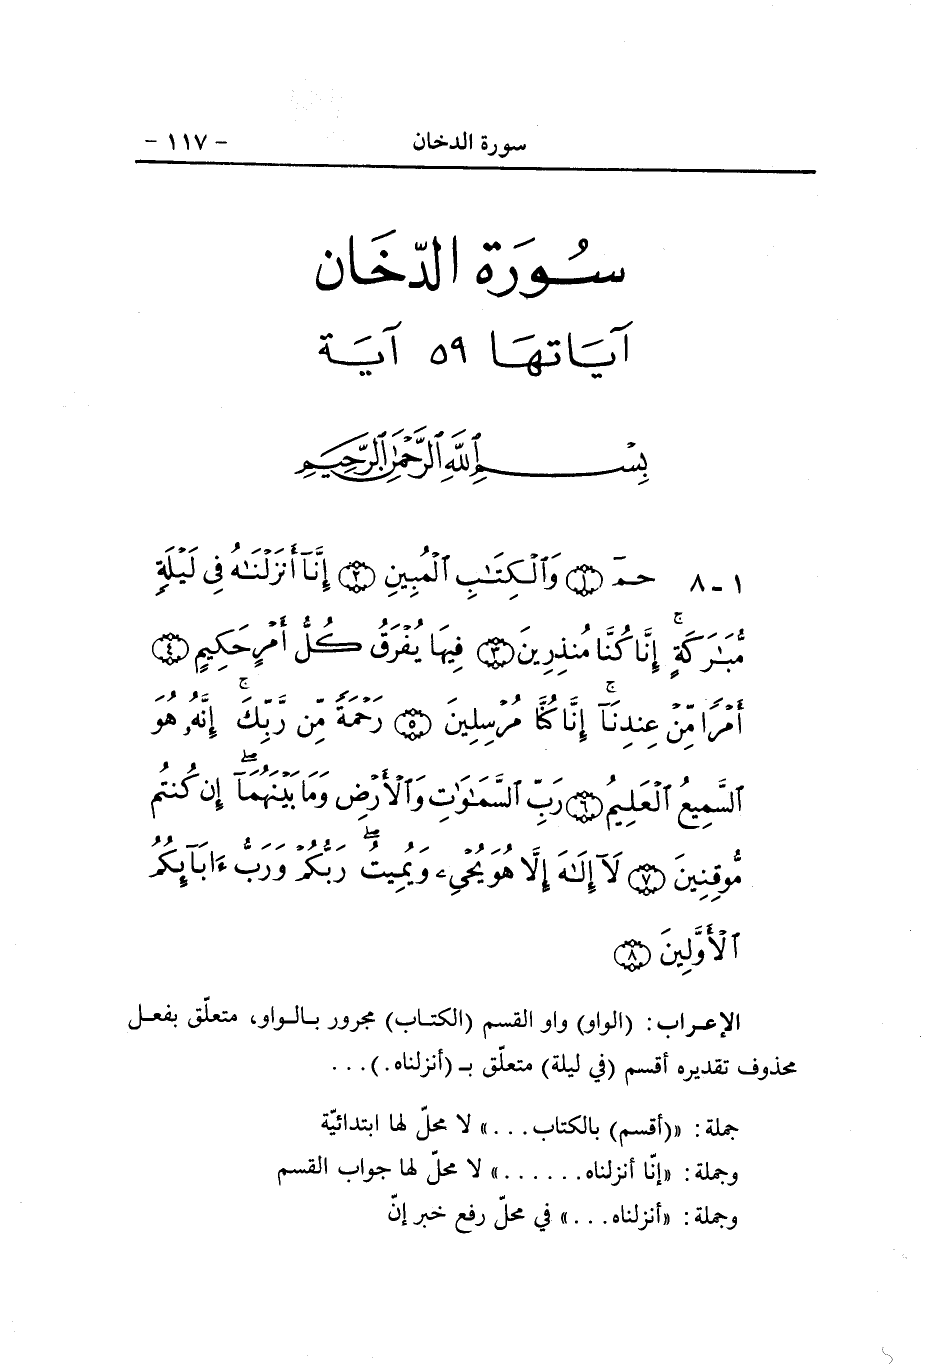 سورة الدخان - ١١٧ -
سُورَة الدّخَان
آيَاتهَا ٥٩ آيَة
بِسْمِ ٱللَّهِ ٱلرَّحْمَٰنِ ٱلرَّحِيمِ
١ - ٨ حمٓ ﴿١﴾ وَٱلْكِتَٰبِ ٱلْمُبِينِ ﴿٢﴾ إِنَّآ أَنزَلْنَٰهُ فِى لَيْلَةٍ
مُّبَٰرَكَةٍ ۚ إِنَّا كُنَّا مُنذِرِينَ ﴿٣﴾ فِيهَا يُفْرَقُ كُلُّ أَمْرٍ حَكِيمٍ ﴿٤﴾
أَمْرًا مِّنْ عِندِنَآ ۚ إِنَّا كُنَّا مُرْسِلِينَ ﴿٥﴾ رَحْمَةً مِّن رَّبِّكَ ۚ إِنَّهُۥ هُوَ
ٱلسَّمِيعُ ٱلْعَلِيمُ ﴿٦﴾ رَبِّ ٱلسَّمَٰوَٰتِ وَٱلْأَرْضِ وَمَا بَيْنَهُمَآ ۖ إِن كُنتُم
مُّوقِنِينَ ﴿٧﴾ لَآ إِلَٰهَ إِلَّا هُوَ يُحْىِۦ وَيُمِيتُ ۖ رَبُّكُمْ وَرَبُّ ءَابَآئِكُمُ
ٱلْأَوَّلِينَ ﴿٨﴾
الإعراب: (الواو) واو القسم (الكتاب) مجرور بالواو، متعلّق بفعل
محذوف تقديره أقسم (في ليلة) متعلّق بـ (أنزلناه.)...
جملة: «(أقسم) بالكتاب...» لا محلّ لها ابتدائيّة
وجملة: «إنّا أنزلناه......» لا محلّ لها جواب القسم
وجملة: «أنزلناه...» في محلّ رفع خبر إنّ